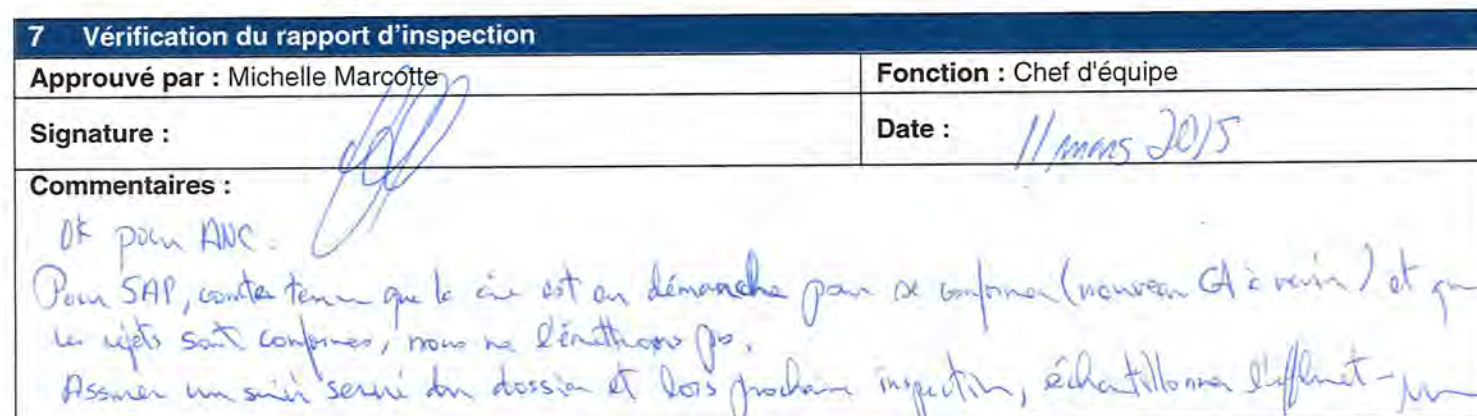 7 Vérification du rapport d'inspection
Approuvé par : Michelle Marcotte
Fonction : Chef d'équipe
Signature :
Date : 11 mars 2015
Commentaires :
Ok pour ANC.
Pour SAP, compte tenu que la cie est en démarche pour se conformer (nouveau CA à venir) et que
les rejets sont conformes, nous ne l'émettrons pas.
Assurer un suivi serré du dossier et lors prochaine inspection, échantillonner l'effluent